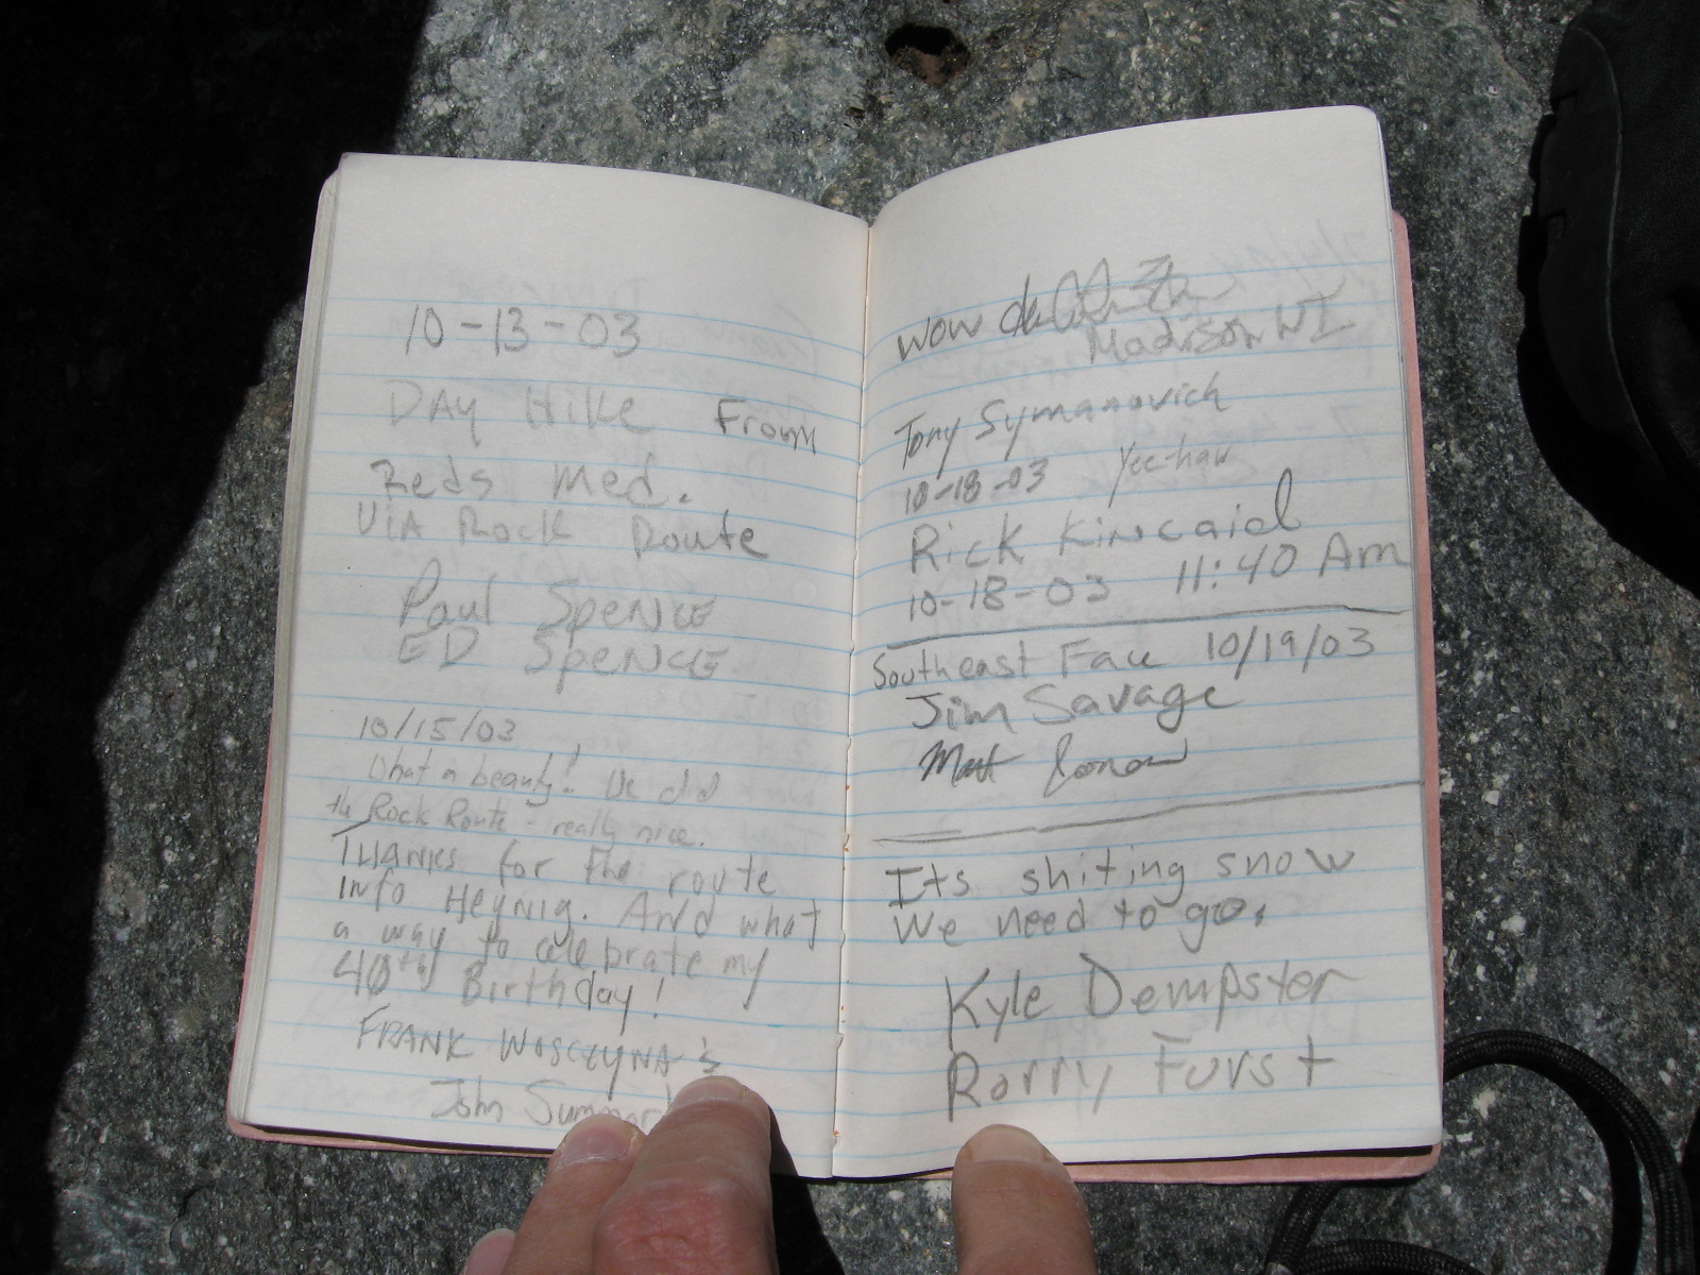 10-13-03
DAY Hike From
Reds Med.
VIA Rock Route
Paul Spence
ED Spence
10/15/03
What a beauty! We did
the Rock Route - really nice.
THANKS for the route
info Heynig. And what
a way to celebrate my
40th Birthday!
FRANK WOSCZYNA &
John
wow
Madison WI
Tony Symanovich
10-18-03 Yee-haw
Rick Kincaid
10-18-03 11:40 Am
Southeast Face 10/19/03
Jim Savage
Matt
Its shiting snow
We need to go.
Kyle Dempster
Rorry Furst